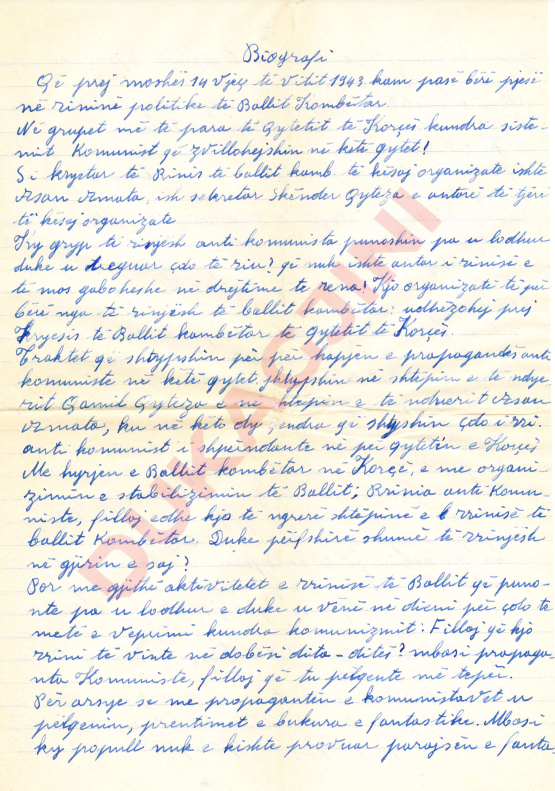 Biografi
Që prej moshës 14 vjeç të vitit 1943 kam pasë bërë pjesë
në rininë politike të Ballit Kombëtar.
Në grupet më të para të qytetit të Korçës kundra siste-
mit Komunist që zvillohejshin në këtë qytet!
Si kryetar të Rinis të ballit komb. të kësaj organizate ishte
Asan Amata, ish sekretar Skënder Qyteza e antorë të tjerë
të kësaj organizate
Ky gryp të rinjësh anti komunista punoshin pa u lodhur
duke u treguar çdo të riu? që nuk ishte antar i rinisë e
të mos gaboheshe në drejtime të rena! Kjo organizatë të për
bërë nga të rinjësh të ballit kombëtar: udhëzohej prej
Kryesis të Ballit kombëtar të qytetit të Korçës.
Traktet që shtypshin për për hapjen e propagandës anti
komuniste në këtë qytet, shtypshin në shtëpin e të ndye-
rit Qamil Qyteza e në shtëpin e të nderit Asan
Amata, ku në këto dy qendra që shtyshin çdo i rri.
anti komunist i shpërndante në për qytetin e Korçës
Me hyrjen e Ballit kombëtar në Korçë, e me organi-
zimin e stabilizimin të Ballit; Rrinia anti Komu-
niste, filloj edhe kjo të ngrerë shtëpinë e rrinisë të
ballit Kombëtar. Duke përfshirë shumë të rrinjësh
në gjirin e saj?
Por me gjithë aktivitetet e rrinisë të Ballit që puno-
nte pa u lodhur e duke u vënë në dieni për çdo te
metë e veprimi kundra komunizmit: Filloj që kjo
rrini të vinte në dobësi dita-ditës? mbasi propaga-
nta Komuniste, filloj që tu pëlqente më tepër.
Për arsye se me propagantën e komunistavet u
pëlqenin, premtimet e bukura e fantastike. Mbasi
ky popull nuk e kishte provuar parajsën e fanta-
DUKAGJINI